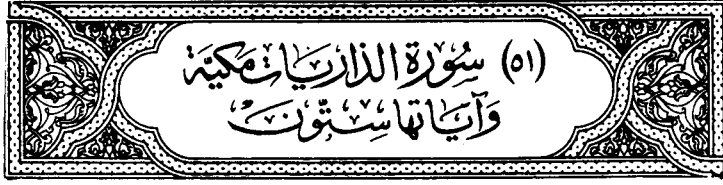 (٥١) سُورَة الذاريَات مَكيَّة
وَآيَاتهَا سِتّونَ